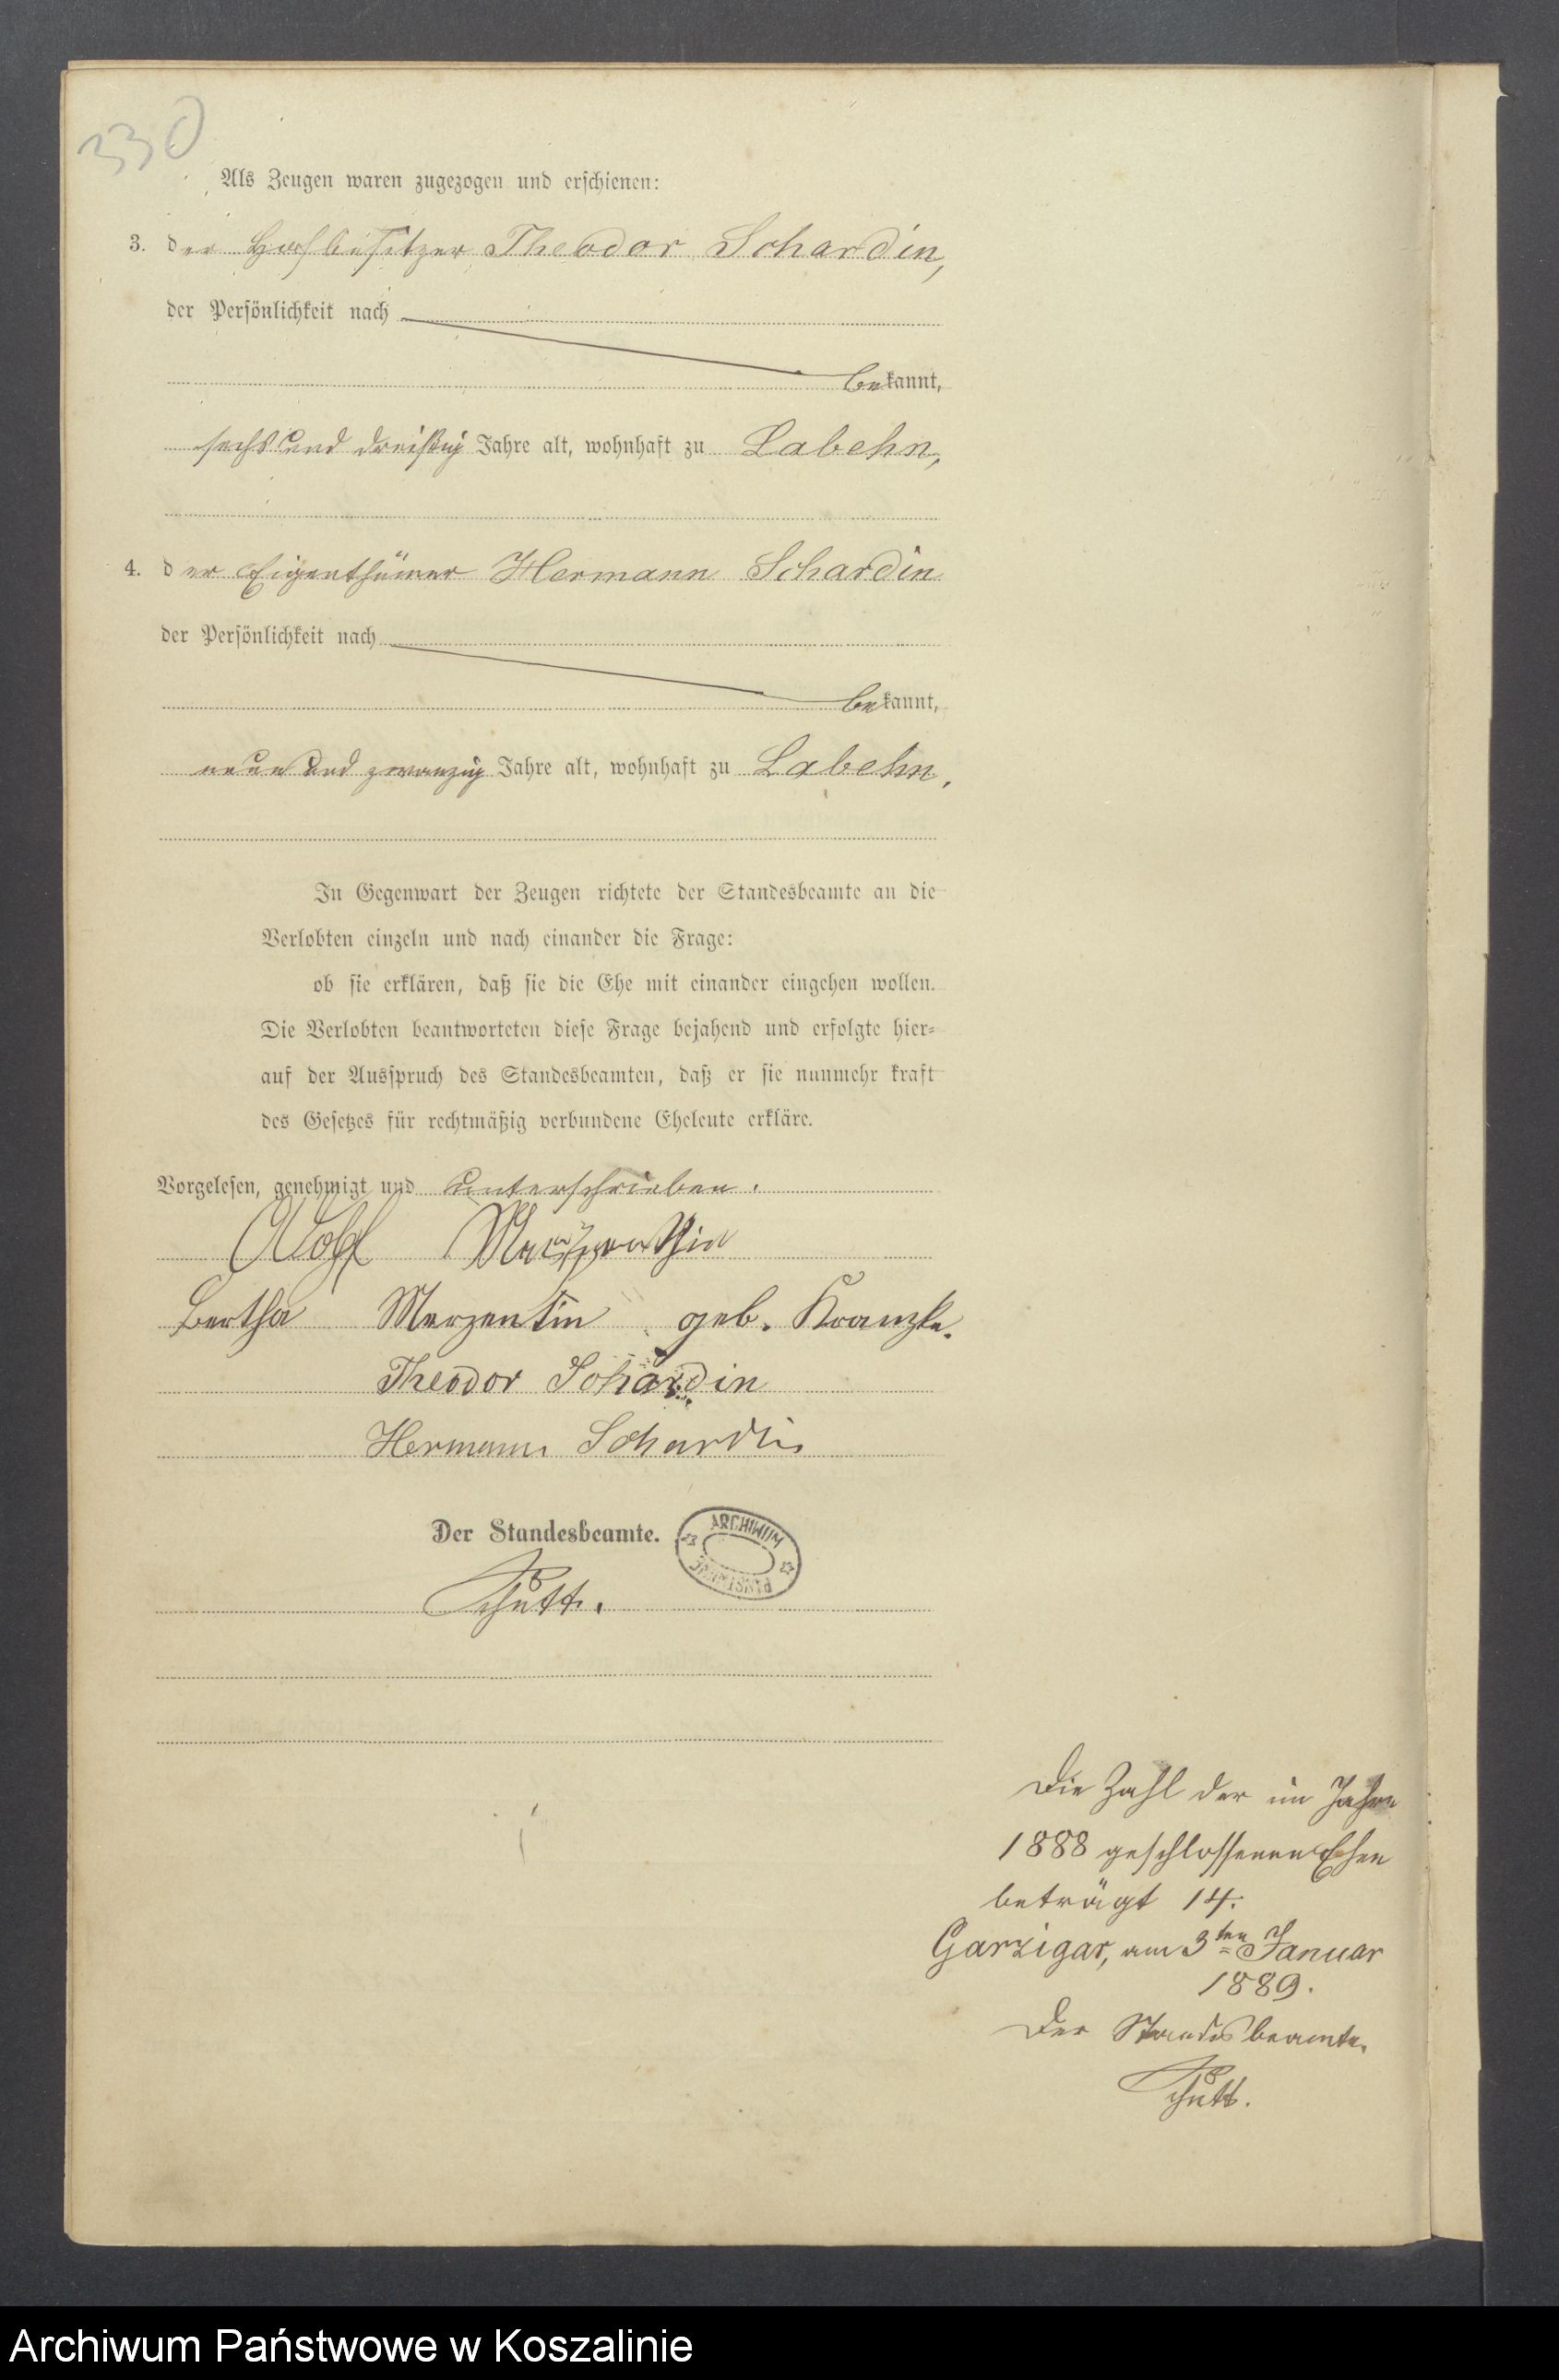 330
Als Zeugen waren zugezogen und erschienen:
3. der Hofbesitzer Theodor Schardin,
der Persönlichkeit nach
bekannt,
sechs und dreißig Jahre alt, wohnhaft zu Labehn,
4. der Eigenthümer Hermann Schardin
der Persönlichkeit nach
bekannt,
neun und zwanzig Jahre alt, wohnhaft zu Labehn.
In Gegenwart der Zeugen richtete der Standesbeamte an die
Verlobten einzeln und nach einander die Frage:
ob sie erklären, daß sie die Ehe mit einander eingehen wollen.
Die Verlobten beantworteten diese Frage bejahend und erfolgte hier-
auf der Ausspruch des Standesbeamten, daß er sie nunmehr kraft
des Gesetzes für rechtmäßig verbundene Eheleute erkläre.
Vorgelesen, genehmigt und unterschrieben.
Bertha Merzentin geb. Kranzke.
Theodor Schardin
Hermann Schardin
Der Standesbeamte.
ARCHIWUM PAŃSTWOWE
Schütt.
Die Zahl der im Jahre
1888 geschlossenen Ehen
beträgt 14.
Garzigar, am 3ten Januar
1889.
Der Standesbeamte.
Schütt.
Archiwum Państwowe w Koszalinie